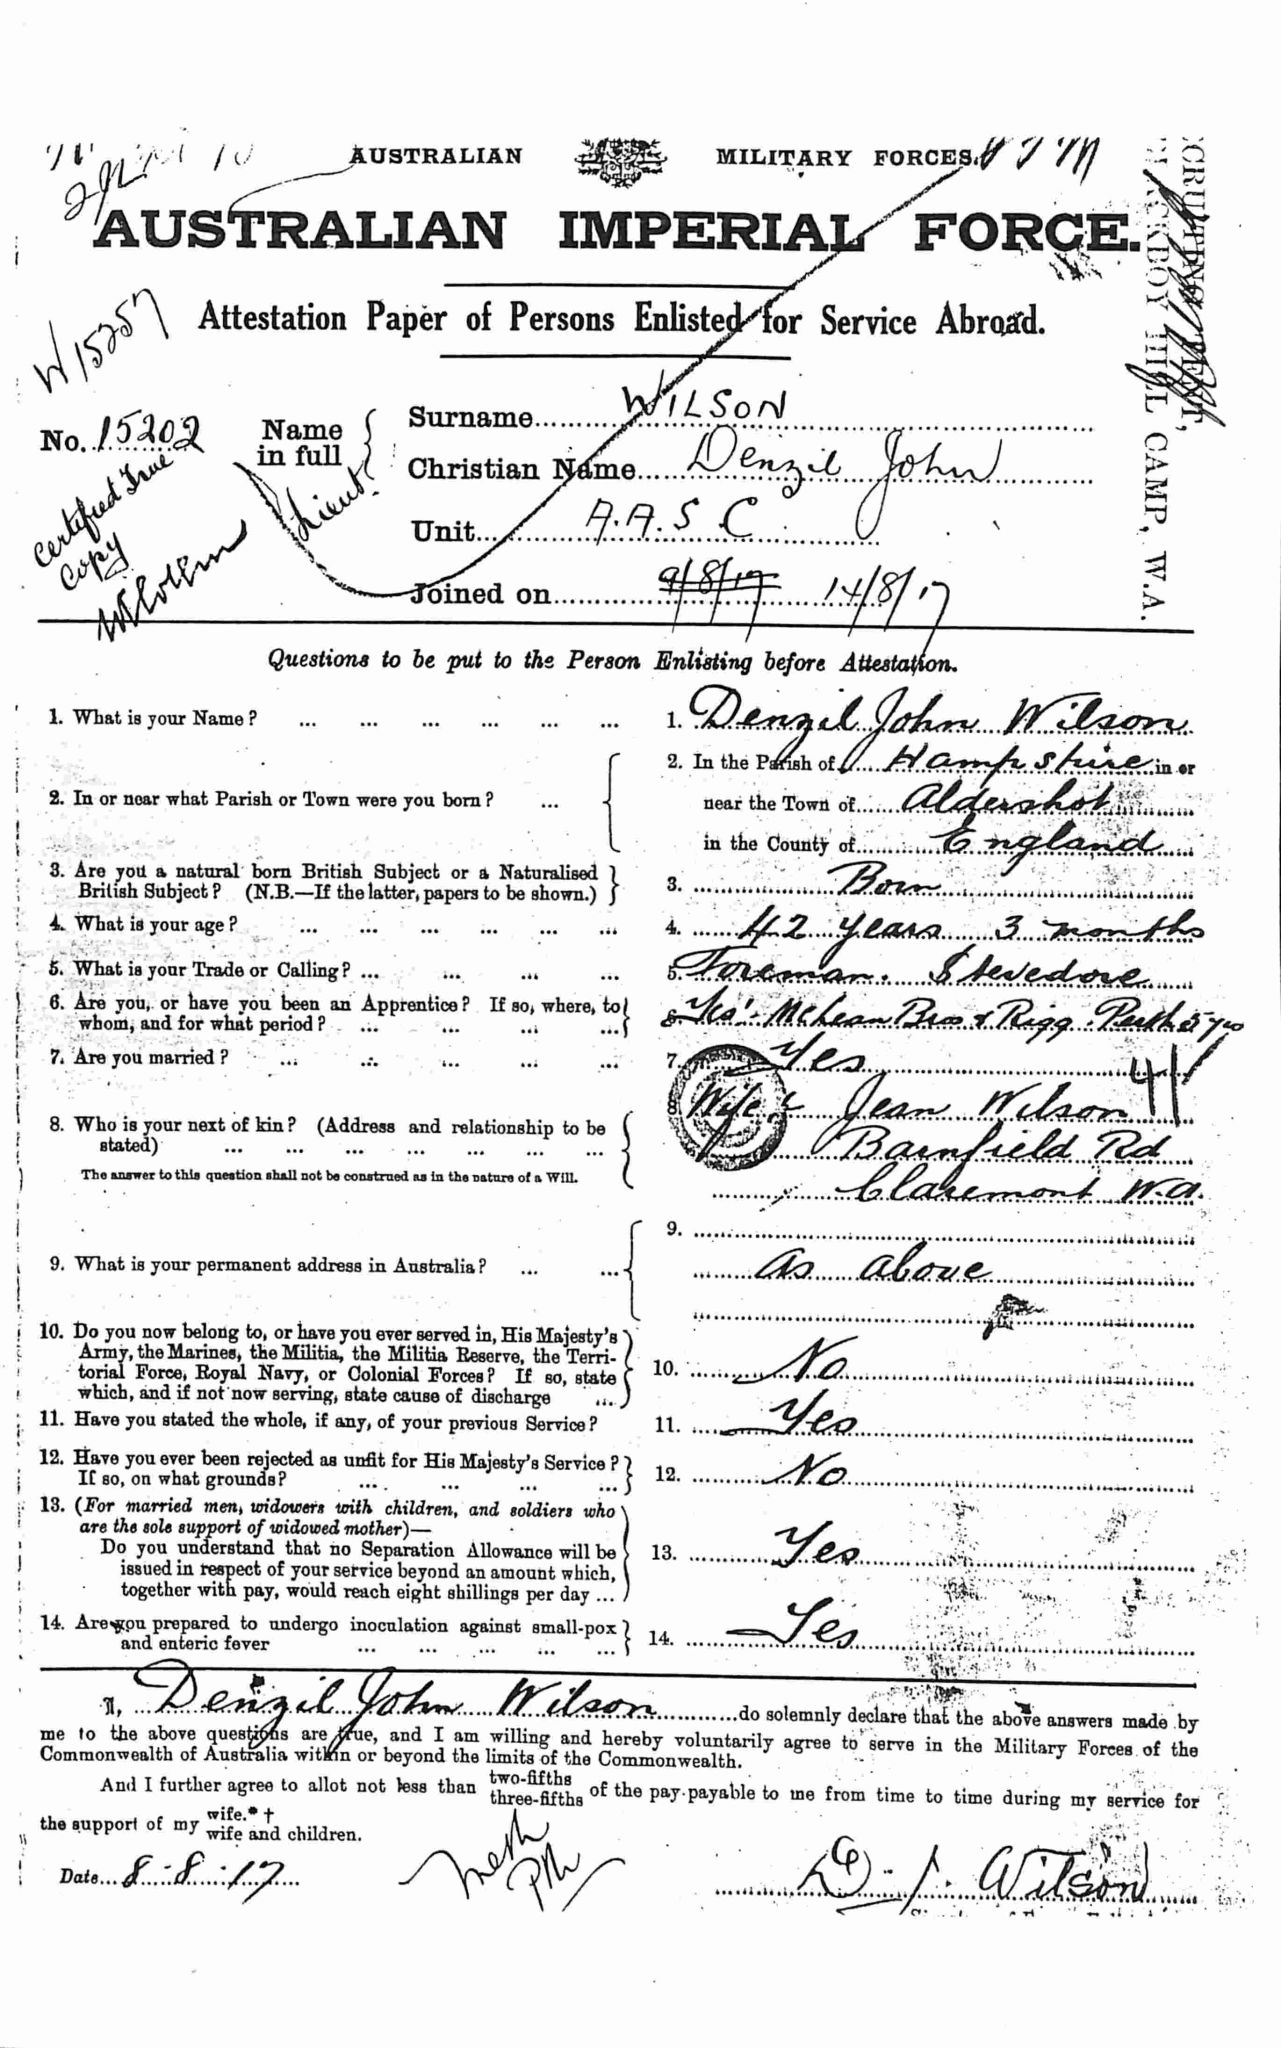 AUSTRALIAN MILITARY FORCES.
AUSTRALIAN IMPERIAL FORCE.
Attestation Paper of Persons Enlisted for Service Abroad.
W 15257
No. 15202
Certified True
Copy
Lieut.
Name
in full
Surname WILSON
Christian Name Denzil John
Unit A.A.S.C.
Joined on 9/8/17 14/8/17
HILL CAMP, W.A.
Questions to be put to the Person Enlisting before Attestation.
1. What is your Name? ... ... ... ... ... ... 1. Denzil John Wilson
2. In or near what Parish or Town were you born? ... 2. In the Parish of Hampshire in or
near the Town of Aldershot
in the County of England
3. Are you a natural born British Subject or a Naturalised
British Subject? (N.B.—If the latter, papers to be shown.) 3. Born
4. What is your age? ... ... ... ... ... ... 4. 42 years 3 months
5. What is your Trade or Calling? ... ... ... ... 5. Foreman. Stevedore
6. Are you, or have you been an Apprentice? If so, where, to
whom, and for what period? ... ... ... ... 6. Yes. McLean Bros & Rigg. Perth 5 yrs
7. Are you married? ... ... ... ... ... 7. Yes
41
8. Who is your next of kin? (Address and relationship to be
stated) ... ... ... ... ... ... ...
The answer to this question shall not be construed as in the nature of a Will.
8. Wife Jean Wilson
Barnfield Rd
Claremont W.A.
9. What is your permanent address in Australia? ... ... 9.
As above
10. Do you now belong to, or have you ever served in, His Majesty's
Army, the Marines, the Militia, the Militia Reserve, the Terri-
torial Force, Royal Navy, or Colonial Forces? If so, state
which, and if not now serving, state cause of discharge ... 10. No
11. Have you stated the whole, if any, of your previous Service? 11. Yes
12. Have you ever been rejected as unfit for His Majesty's Service?
If so, on what grounds? ... ... ... ... 12. No
13. (For married men, widowers with children, and soldiers who
are the sole support of widowed mother)—
Do you understand that no Separation Allowance will be
issued in respect of your service beyond an amount which,
together with pay, would reach eight shillings per day ... 13. Yes
14. Are you prepared to undergo inoculation against small-pox
and enteric fever ... ... ... ... ... 14. Yes
I, Denzil John Wilson do solemnly declare that the above answers made by
me to the above questions are true, and I am willing and hereby voluntarily agree to serve in the Military Forces of the
Commonwealth of Australia within or beyond the limits of the Commonwealth.
And I further agree to allot not less than two-fifths
three-fifths of the pay payable to me from time to time during my service for
the support of my wife.* †
wife and children.
Date 8.8.17
D. J. Wilson